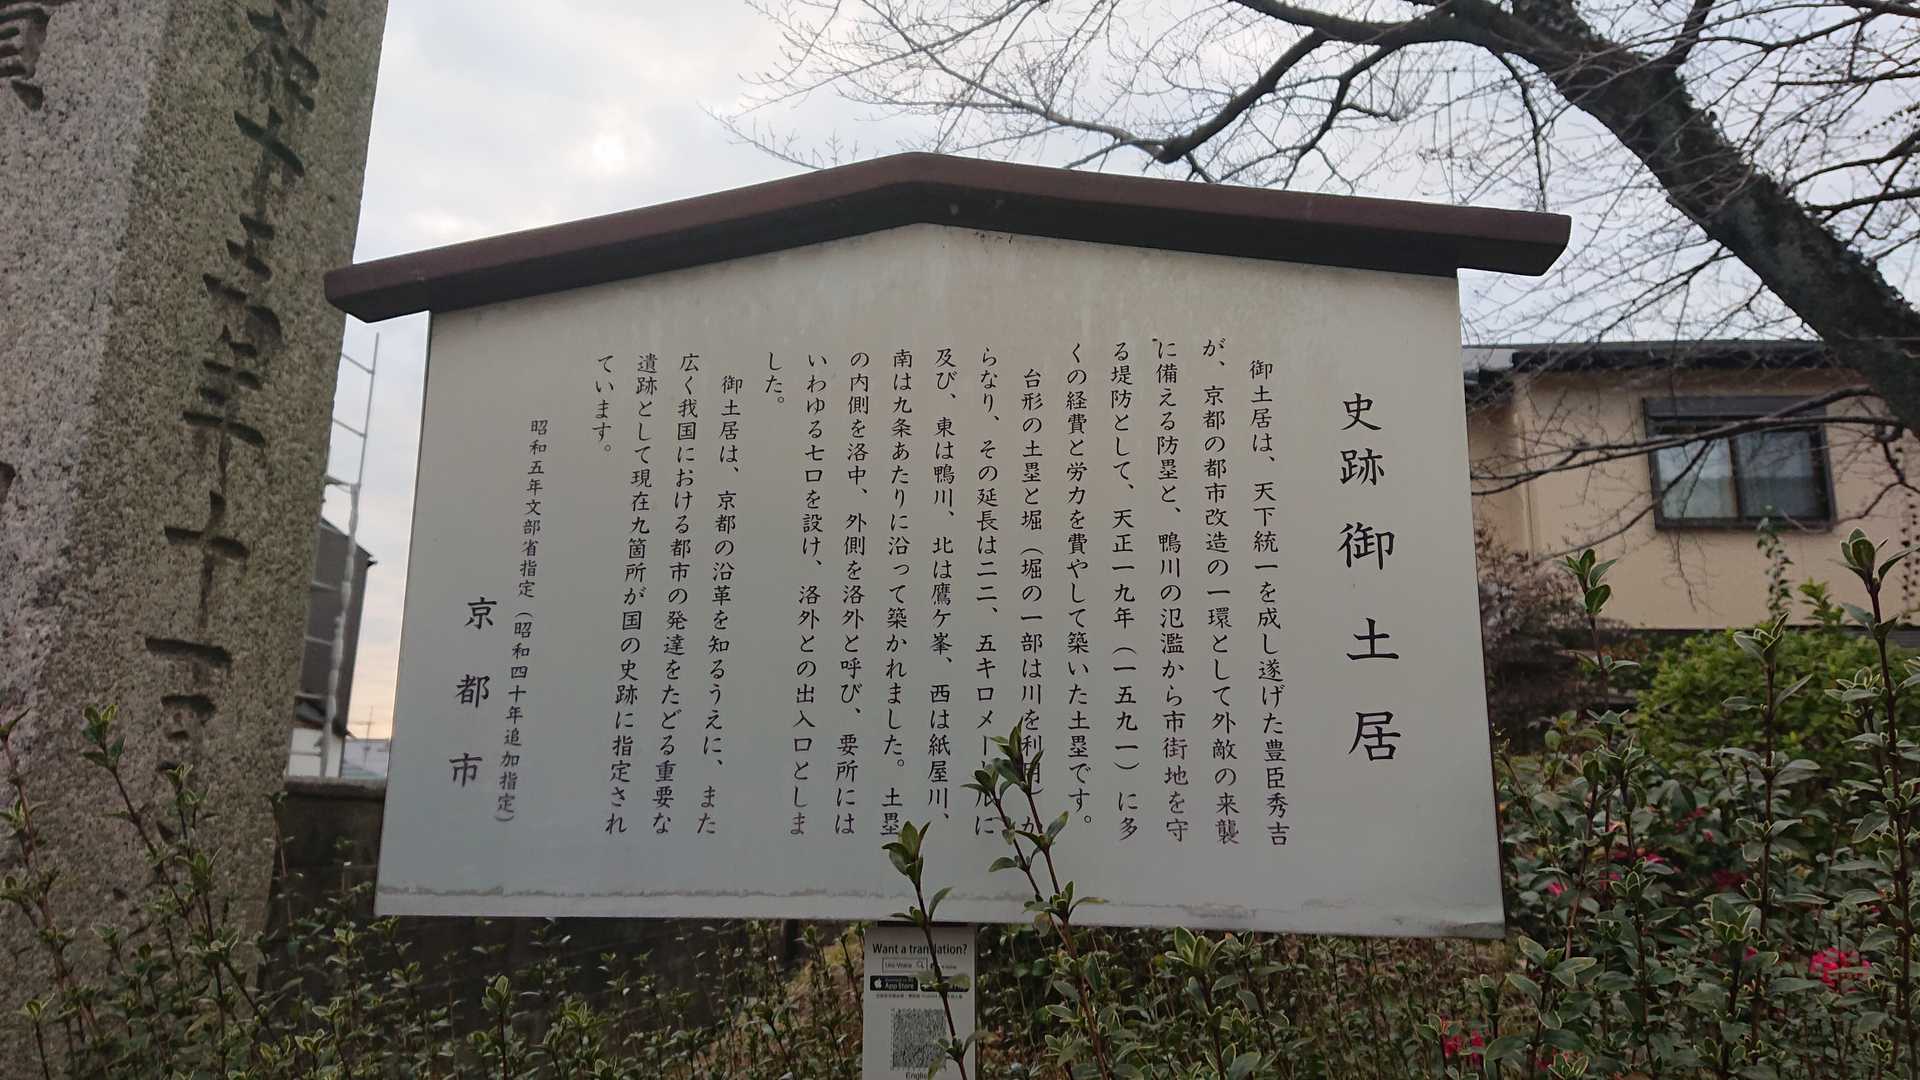 史跡 御土居
御土居は、天下統一を成し遂げた豊臣秀吉
が、京都の都市改造の一環として外敵の来襲
に備える防塁と、鴨川の氾濫から市街地を守
る堤防として、天正一九年（一五九一）に多
くの経費と労力を費やして築いた土塁です。
台形の土塁と堀（堀の一部は川を利用）か
らなり、その延長は二二、五キロメートルに
及び、東は鴨川、北は鷹ケ峯、西は紙屋川、
南は九条あたりに沿って築かれました。土塁
の内側を洛中、外側を洛外と呼び、要所には
いわゆる七口を設け、洛外との出入口としま
した。
御土居は、京都の沿革を知るうえに、また
広く我国における都市の発達をたどる重要な
遺跡として現在九箇所が国の史跡に指定され
ています。
昭和五年文部省指定（昭和四十年追加指定）
京都市
Want a translation?
App Store